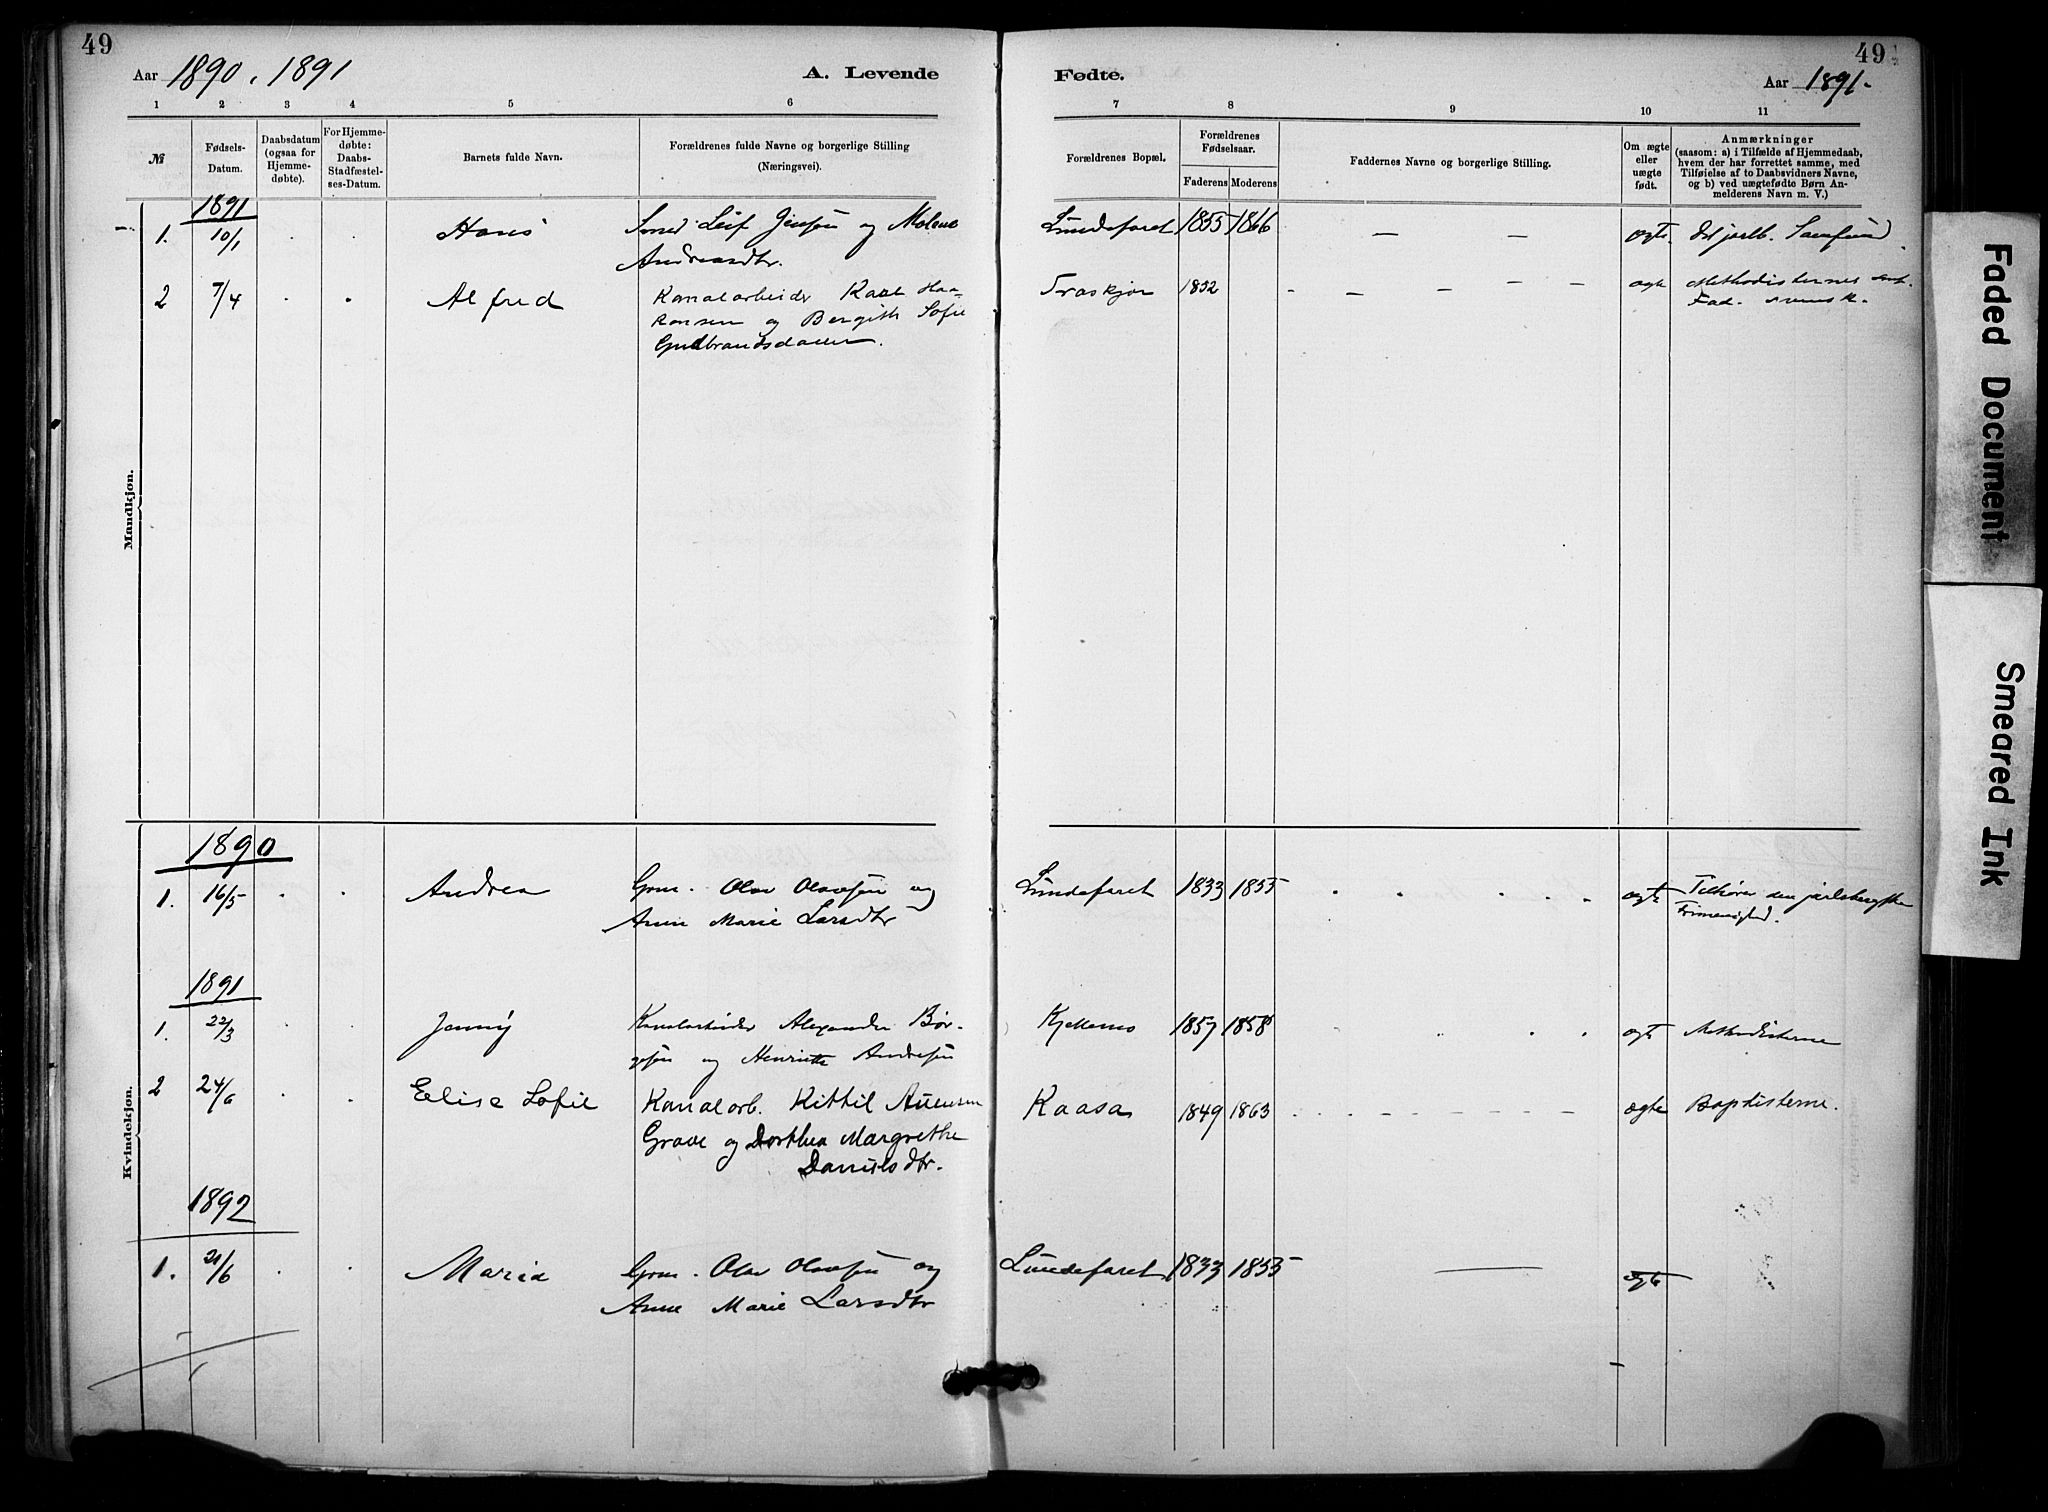 49
49
Aar 1890. 1891
A. Levende
Fødte.
Aar 1891.
1 2 3 4 5 6 7 8 9 10 11
№
Fødsels-
Datum.
Daabsdatum
(ogsaa for
Hjemme-
døbte).
For Hjemme-
døbte:
Daabs-
Stadfæstel-
ses-Datum.
Barnets fulde Navn.
Forældrenes fulde Navne og borgerlige Stilling
(Næringsvei).
Forældrenes Bopæl.
Forældrenes
Fødselsaar.
Faderens Moderens
Faddernes Navne og borgerlige Stilling.
Om ægte
eller
uægte
født.
Anmærkninger
(saasom: a) i Tilfælde af Hjemmedaab,
hvem der har forrettet samme, med
Tilføielse af to Daabsvidners Navne,
og b) ved uægtefødte Børn An-
melderens Navn m. V.)
Mandkjøn.
1891
1. 10/1 Hans Smed Leif Jensen og Malene Lundefaret 1855 1866 — — ægte. Det jarlb. Samfund
Andreasdtr.
2 7/4 Alfred Kanalarbeider Karl Haa- 1832 - - - - - - ægte Methodisternes
kansen og Bergith Sofie Fad. svensk.
Gudbrandsdatter.
Kvindekjøn.
1890
1. 16/5 Andrea Grm. Olav Olavsen og Lundefaret 1833 1855 ægte Tilhører den jarlsbergske
Anne Marie Larsdtr Frimenighed.
1891
1. 22/3 Jenny Kanalarbeider Alexander Bør- 1857 1858 ægt Methodisterne
gesen og Henriette Andresen
2 24/6 Elise Sofie Kanalarb. Kittil Auensen Kaasa 1849 1863 - - - - - - - ægte Baptisterne.
Grave og Dorthea Margrethe
Danielsdtr.
1892
1. 21/6 Maria Grm. Olav Olavsen og Lundefaret 1833 1855 — ægte
Anne Marie Larsdtr
Faded Document
Smeared Ink